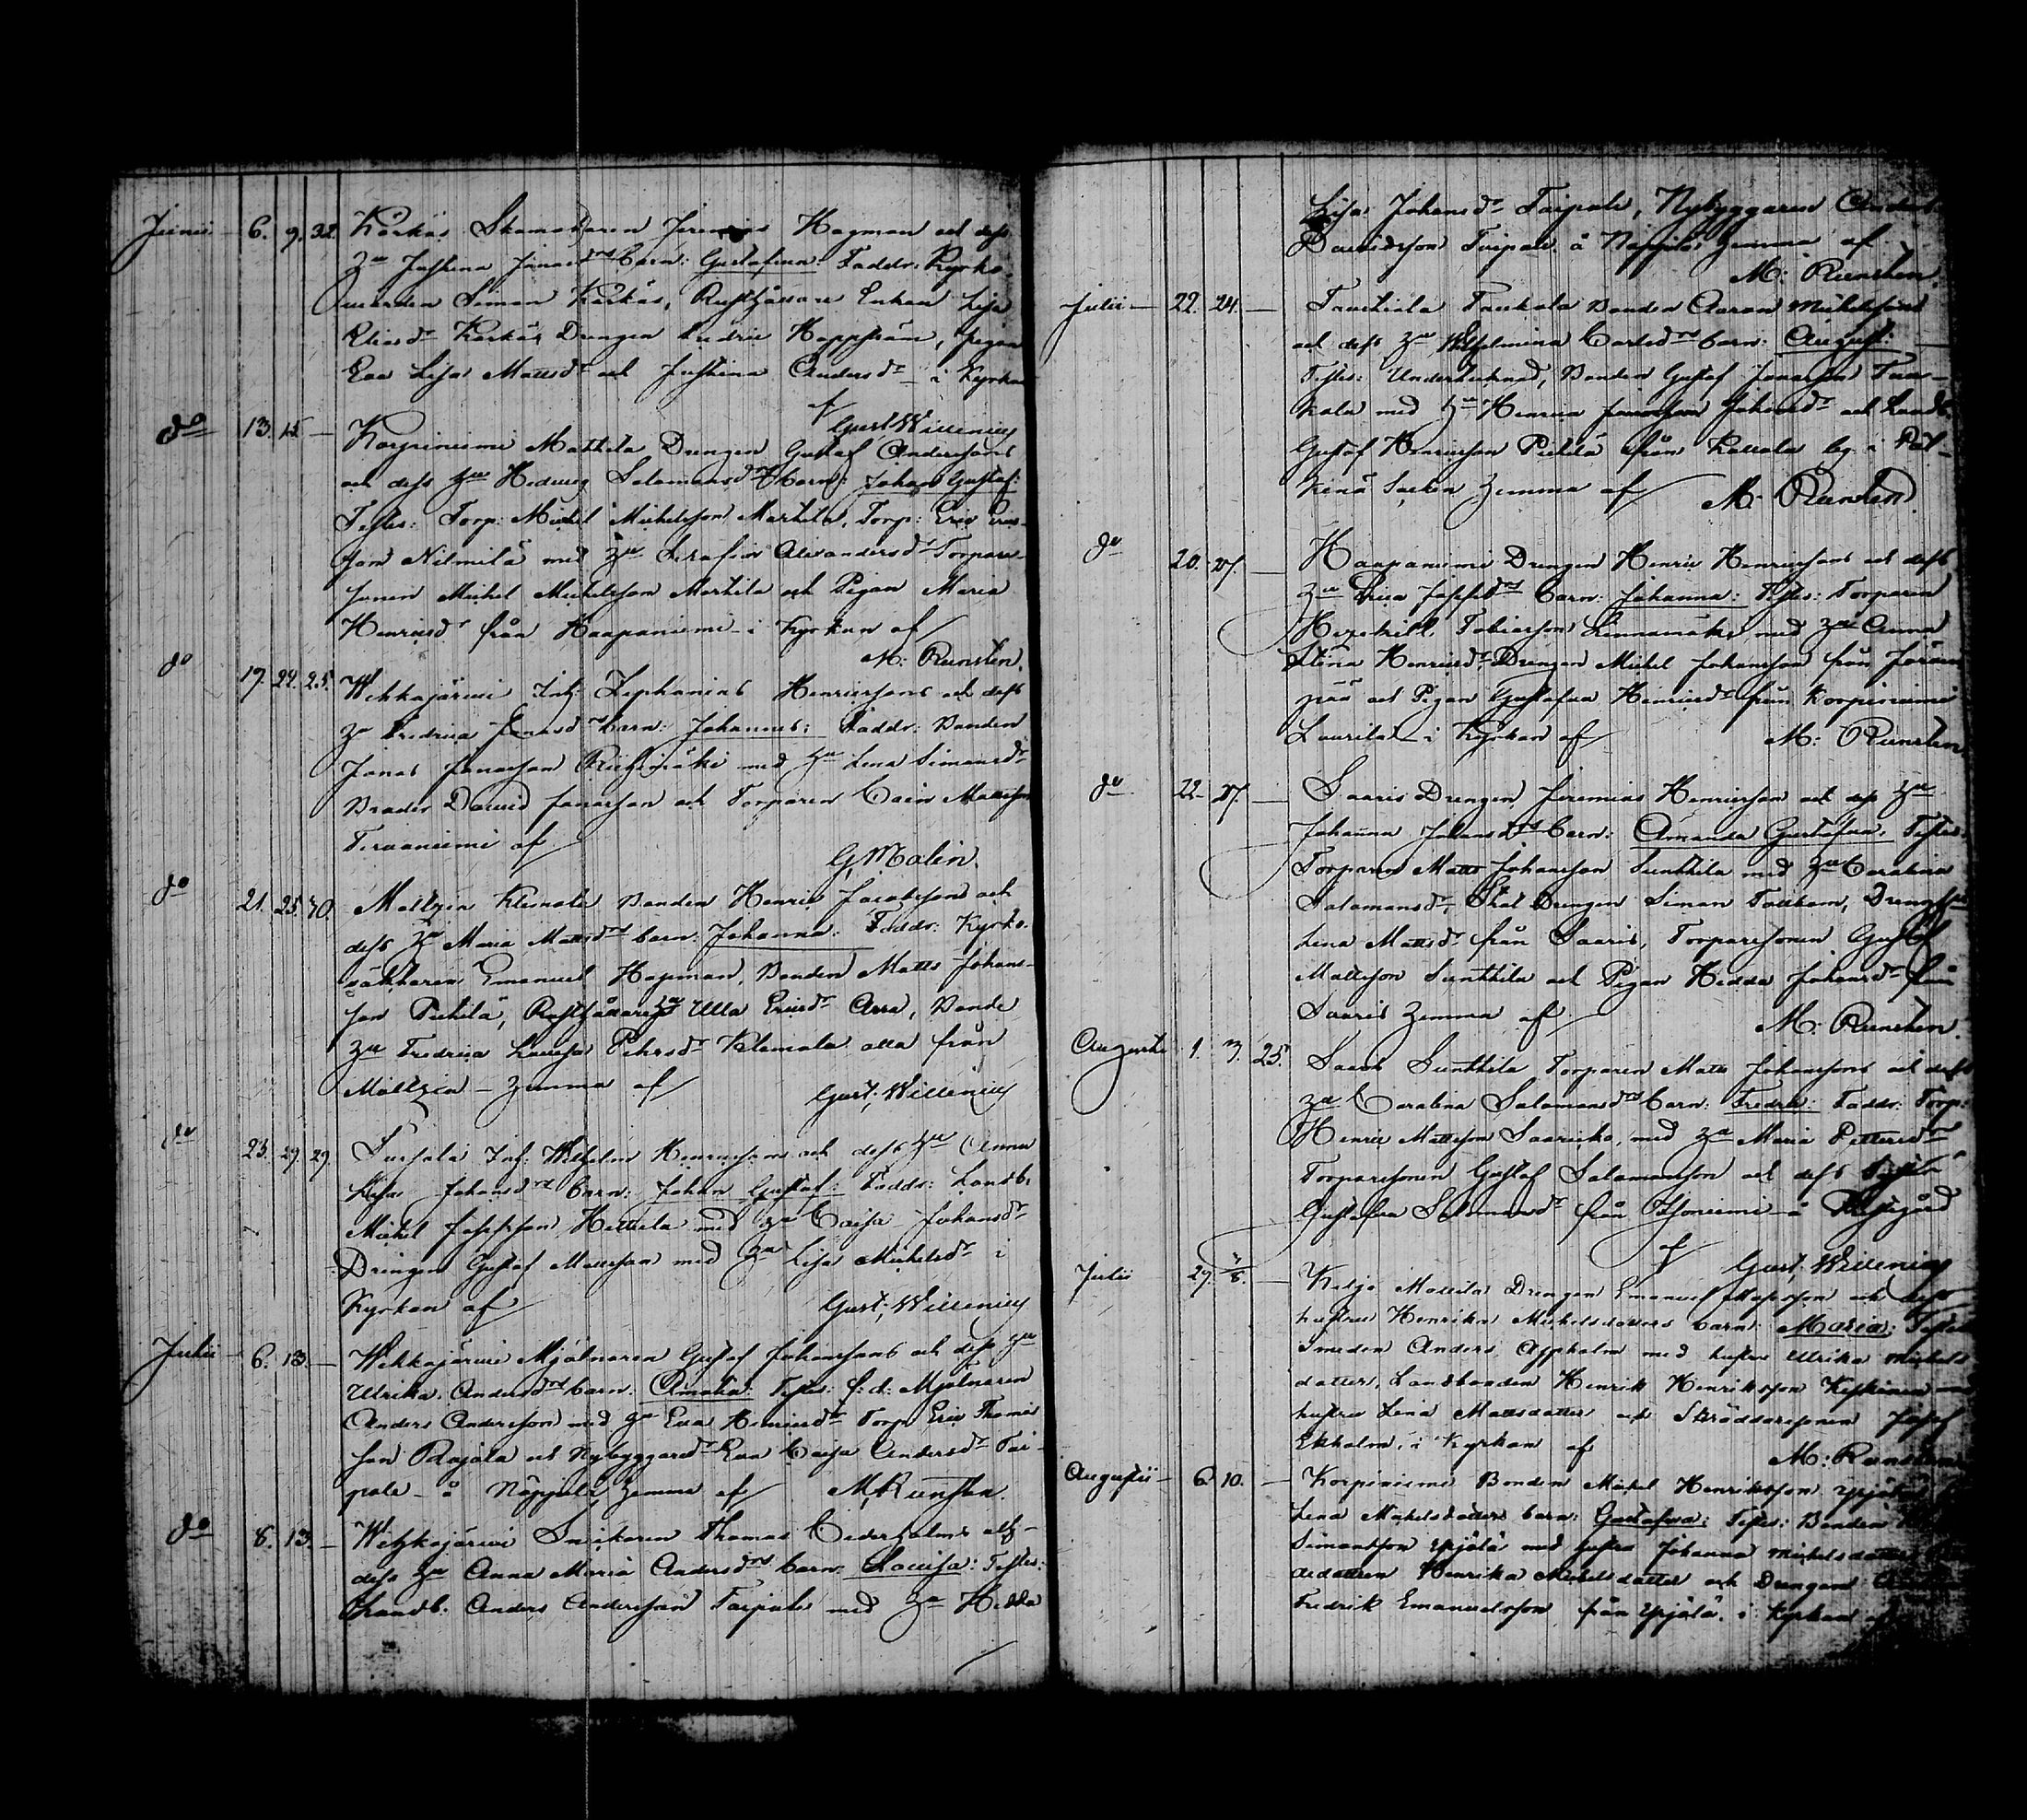 Junii 6. 9. 32. Karkas Skomakaren Jeremias Hagman och dess
Hu Justina Jonasdrs barn: Gustafwa: Faddr: Kyrko-
wärden Simon Karkas, Rusthållare Enkan Lisa
Eliasdr Karkas Drengen Andrie pigan
Eva Lisa Mattsdr och Justina Andersdr i Kyrkan
af Gust: Willenius
do 13. 15. — Korpiniemi Mattila Drengen Gustaf Anderssons
och dess Hu Hedwig Salomonsdrs barn: Johan Gustaf:
Testes: Torp: Michel Michelsson Markila, Torp: Eric Erics-
son Nilmilä med Hu Serafia Alexandersdr Torpare-
sonen Michel Michelsson Markila och Pigan Maria
Henricsdr från Haapaniemi i Kyrkan af
M: Runsten.
do 19. 22. 25. Wehkajärwi Inh: Zephanias Henricssons och dess
Hu Fredrica Jonasdr barn: Johannes: Faddr: Bonden
Jonas Jonasson med Hu Lena Simonsdr
Broder Dawid Jonasson och Torparen Cain Mattsson
Terwaniemi af
G. Malin.
do 21. 25. 40. Maltzia Klemola Bonden Henric Jacobssons och
dess Hu Maria Mattsdrs barn: Johanna: Faddr: Kyrko-
wäktaren Emanuel Hagman, Bonden Matts Johans-
son Pietilä, Rusthållare Hu Ulla Ericsdr Arra, Bonde
Hu Fredrica Lowisa Pehrsdr Klemola alla från
Maltzia — hemma af Gust: Willenius
do 23. 29. 29. Sursala Inh: Wilhelm Henricssons och dess Hu Anna
Lisa Johansdrs barn: Johan Gustaf: Faddr: Landb:
Michel Josephsson Hettula med Hu Caisa Johansdr
Drengen Gustaf Mattsson med Hu Lisa Michelsdr i
Kyrkan af Gust: Willenius
Julii 6. 13. — Wehkajärwi Mjölnaren Gustaf Johanssons och dess Hu
Ulrika Andersdrs barn: Amalia: Testes: f: d: Mjölnaren
Anders Andersson med Hu Eva Henricsdr Torp: Eric Thomas-
son Rajala och Nybyggaredr Eva Caisa Andersdr Tai-
pale å Näppilä hemma af M: Runsten.
do 8. 13. — Wehkajärwi Snickaren Thomas Cederholms och
dess Hu Anna Maria Andersdrs barn: Lowisa: Testes:
Landb: Anders Andersson Taipale med Hu Hedda
Lisa Johansdr Taipale, Nybyggaren Anders
Dawidsson Taipale å Näppilä hemma af
M: Runsten.
Julii 22. 24. — Taurkola Bonden Aaron Michelssons
och dess Hu Wilhelmina Carlsdrs barn: August:
Testes: Undertecknad, Bonden Gustaf Jonasson Tau-
kola med Hu Henrica Johansdr och Landb:
Gustaf Henricsson Pietilä från Kollola by i Päl-
känä Socken hemma af M: Runsten.
do 20. 27. — Haapaniemi Drengen Henric Henricssons och dess
Hu Josefsdrs barn: Johanna: Testes: Torparen
Hezekiel Tobiasson Linnamäki med Hu Anna
Stina Henricsdr Drengen Michel Johansson från
pää och Pigan Gustafwa Henricsdr från Korpiniemi
Laurila i Kyrkan af M: Runsten
do 22. 27. — Saaris Drengen Jeremias Henricsson och dess Hu
Johanna Johansdrs barn: Amanda Gustafwa: Testes:
Torparen Matts Johansson Sunthila med Hu Carolina
Salomonsdr, Drengen Simon Drengens
Lena Mattsdr från Saaris, Torparesonen Gustaf
Mattsson Sunthila och Pigan Hedda Johansdr från
Saaris hemma af M: Runsten.
Augusti 1. 3. 25. Saaris Sunthila Torparen Matts Johanssons och dess
Hu Carolina Salomonsdrs barn: Fredric: Faddr: Torp:
Henric Mattsson Saaricko, med Hu Maria Pettersdr
Torparesonen Gustaf Salomonsson och dess
Gustafwa Salomonsdr från Isoniemi å Prestgård
af Gust: Willenius
Julii 29. — Keljo Mattila Drengen Emanuel och dess
hustru Henrika Michelsdotters barn: Maria: Testes
Smeden Anders Aspholm med hustru Ulrika Michels
dotter, Landbonden Henrik Henriksson Keskinen med
hustru Lena Mattsdotter och Skräddaresonen Josef
Ekholm, i Kyrkan af M: Runsten
Augustii 6. 10. — Korpiniemi Bonden Michel Henriksson Yrjälä
Lena Michelsdotters barn: Gustafwa: Testes: Bonden
Simonsson Yrjälä med hustru Johanna Michelsdotter
Henrika Michelsdotter och Drengen
Fredrik Emanuelsson från Yrjälä. i Kyrkan